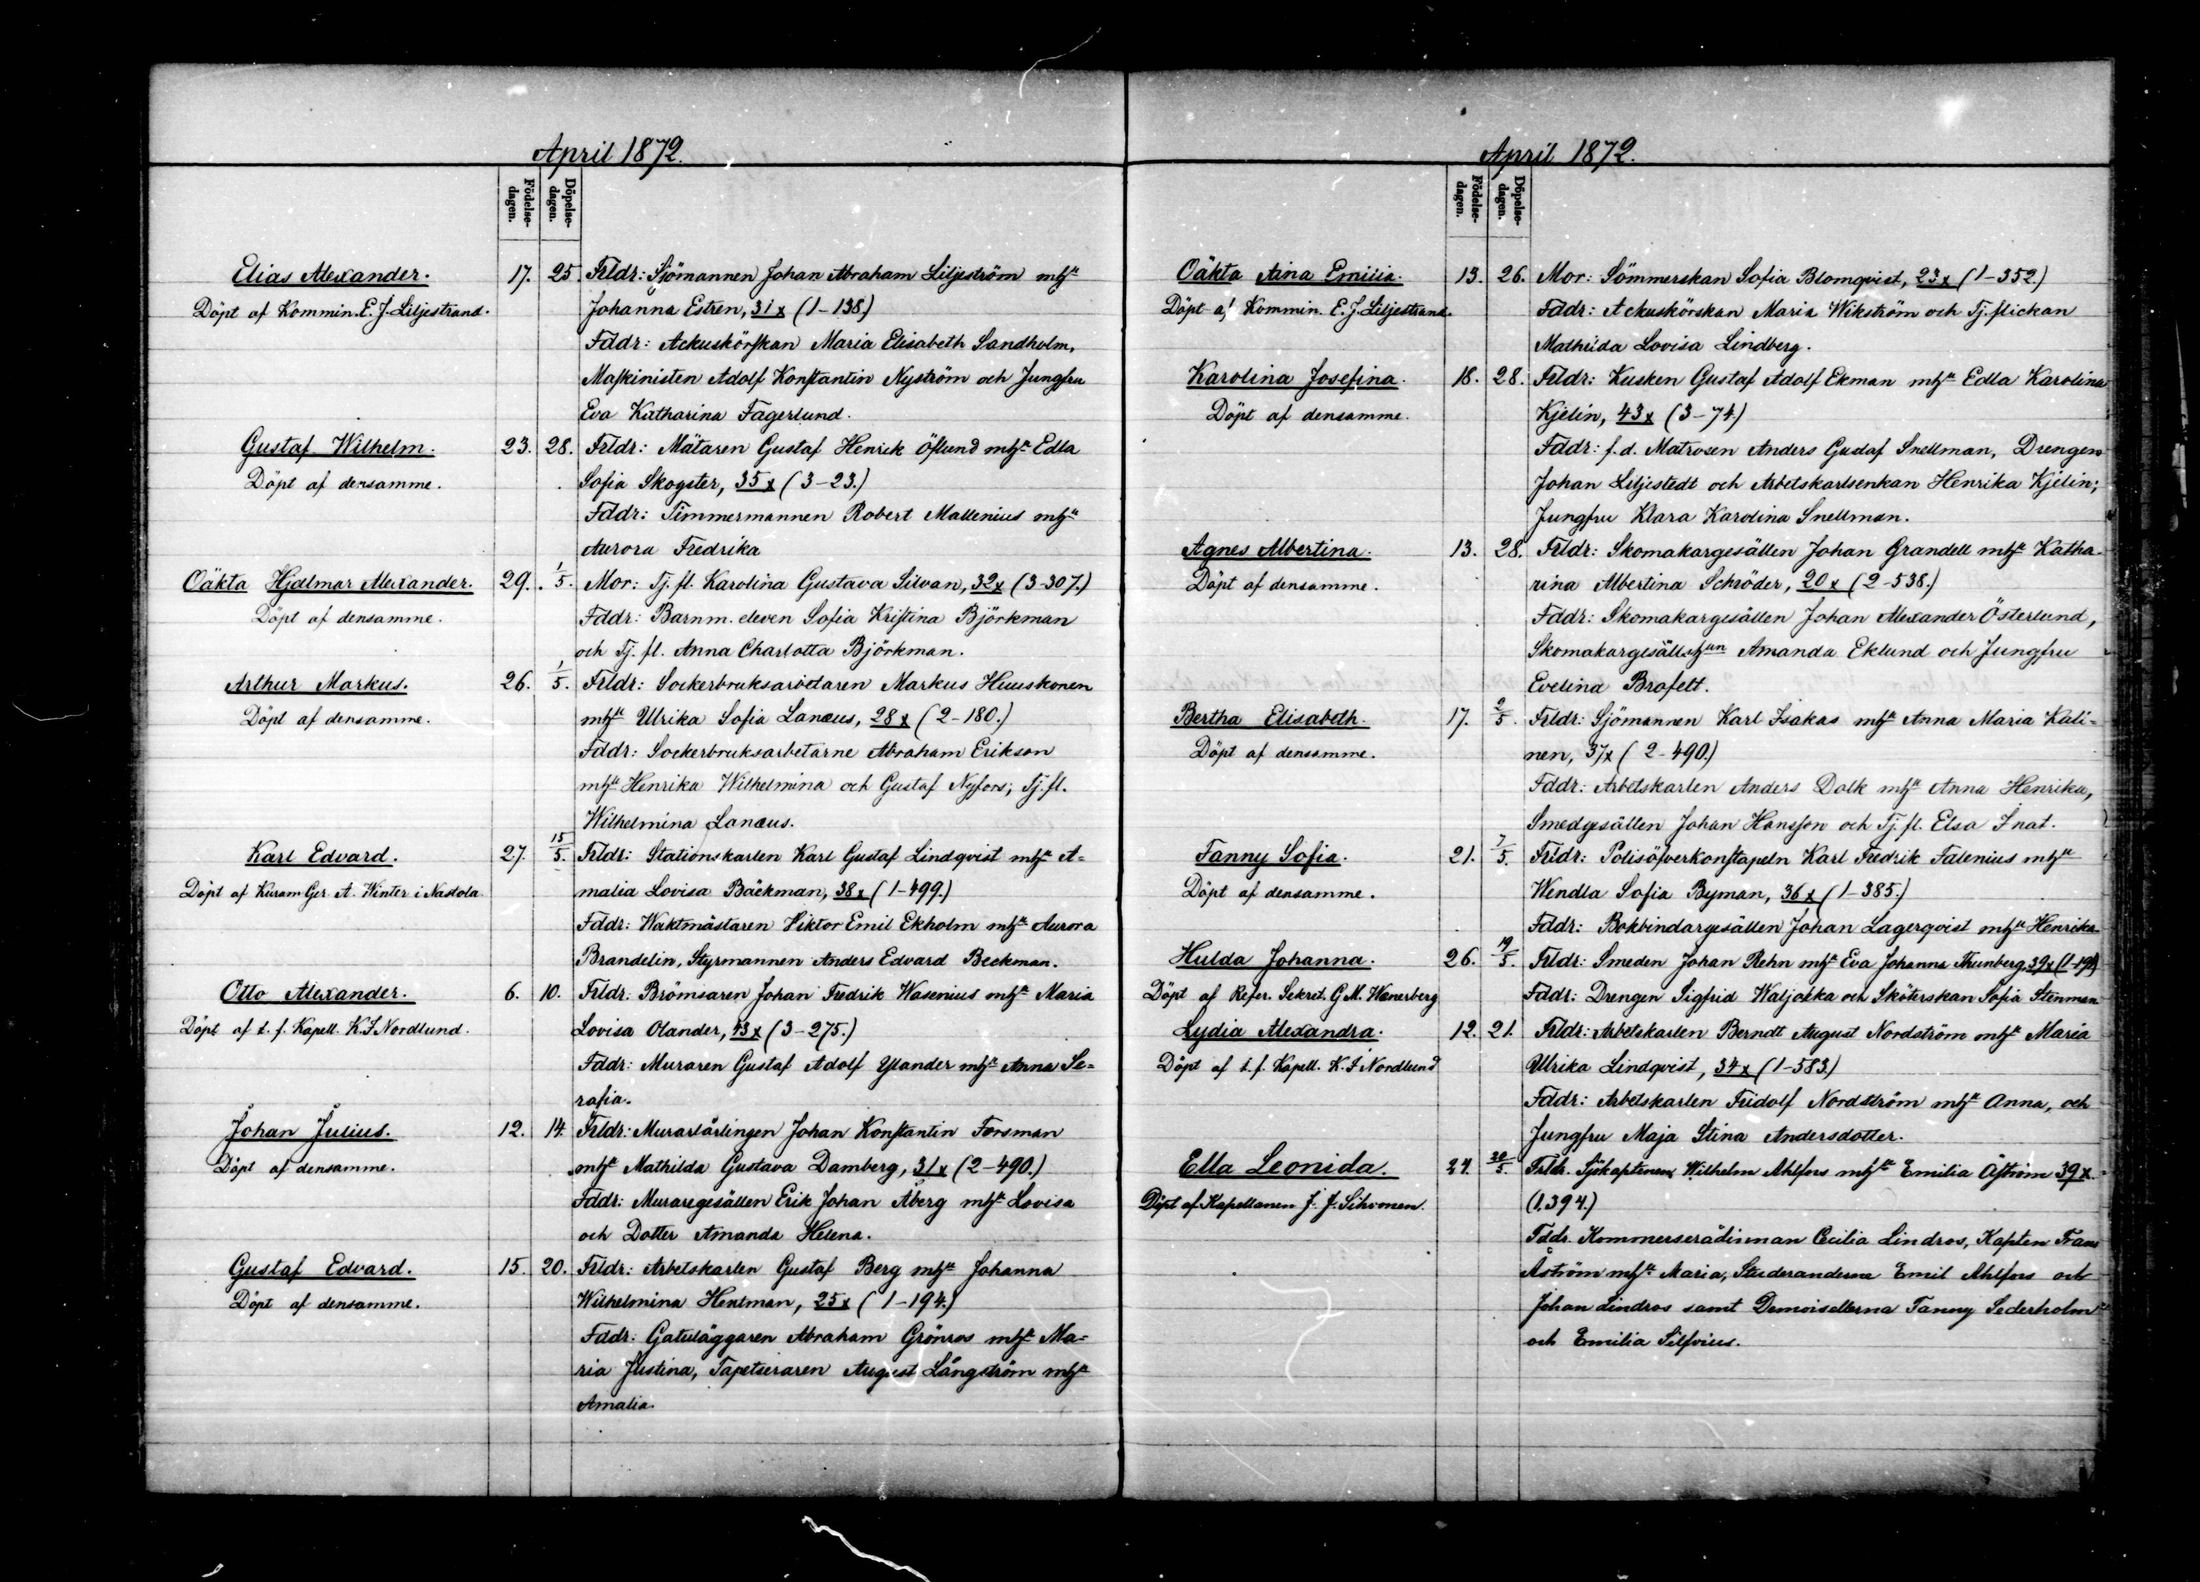 April 1872.
Födelse-dagen.
Döpelse-dagen.
Elias Alexander. 17. 25. Frldr: Sjömannen Johan Abraham Liljeström mhu
Döpt af Kommin. E. J. Liljestrand. Johanna Estren, 31x (1-138.)
Fddr: Ackuskörskan Maria Elisabeth Sandholm,
Maskinisten Adolf Konstantin Nyström och Jungfru
Eva Katharina Fagerlund.
Gustaf Wilhelm. 23. 28. Frldr: Mätaren Gustaf Henrik Öflund mhu Edla
Döpt af densamme. Sofia Skogster, 35x (3-23.)
Fddr: Timmermannen Robert Mallenius mhu
Aurora Fredrika
Oäkta Hjalmar Alexander. 29. 1/5. Mor: Tj. fl. Karolina Gustava Silvan, 32x (3-307.)
Döpt af densamme. Fddr: Barnm. eleven Sofia Kristina Björkman
och Tj. fl. Anna Charlotta Björkman.
Arthur Markus. 26. 1/5. Frldr: Sockerbruksarbetaren Markus Huuskonen
Döpt af densamme. mhu Ulrika Sofia Lanæus, 28x (2-180.)
Fddr: Sockerbruksarbetarne Abraham Erikson
mhu Henrika Wilhelmina och Gustaf Nyfors; Tj. fl.
Wilhelmina Lanæus.
Karl Edvard. 27. 15/5. Frldr: Stationskarlen Karl Gustaf Lindqvist mhu A-
Döpt af Kuram Ger A. Winter i Nastola malia Lovisa Bäckman, 38x (1-499.)
Fddr: Waktmästaren Viktor Emil Ekholm mhu Aurora
Brandelin, Styrmannen Anders Edvard Beckman.
Otto Alexander. 6. 10. Frldr: Brömsaren Johan Fredrik Wasenius mhu Maria
Döpt af t. f. Kapell. K. J. Nordlund. Lovisa Olander, 43x (3-275.)
Fddr: Muraren Gustaf Adolf Ylander mhu Anna Se-
rafia.
Johan Julius. 12. 14. Frldr: Murarlärlingen Johan Konstantin Forsman
Döpt af densamme. mhu Mathilda Gustava Damberg, 31x (2-490.)
Fddr: Muraregesällen Erik Johan Åberg mhu Lovisa
och Dotter Amanda Helena.
Gustaf Edvard. 15. 20. Frldr: Arbetskarlen Gustaf Berg mhu Johanna
Döpt af densamme. Wilhelmina Hentman, 25x (1-194.)
Fddr: Gatuläggaren Abraham Grönros mhu Ma-
ria Justina, Tapetseraren August Långström mhu
Amalia.
April 1872.
Födelse-dagen.
Döpelse-dagen.
Oäkta Aina Emilia. 13. 26. Mor: Sömmerskan Sofia Blomqvist, 23x (1-352.)
Döpt af Kommin. E. J. Liljestrand. Fddr: Ackuskörskan Maria Wikström och Tj. flickan
Mathilda Lovisa Lindberg.
Karolina Josefina. 18. 28. Frldr: Kusken Gustaf Adolf Ekman mhu Edla Karolina
Döpt af densamme. Kjelin, 43x (3-74.)
Fddr: f. d. Matrosen Anders Gustaf Snellman, Drengen
Johan Liljestedt och Arbetskarlsenkan Henrika Kjelin;
Jungfru Klara Karolina Snellman.
Agnes Albertina. 13. 28. Frldr: Skomakargesällen Johan Grandell mhu Katha-
Döpt af densamme. rina Albertina Schröder, 20x (2-538.)
Fddr: Skomakargesällen Johan Alexander Österlund,
Skomakargesällshun Amanda Eklund och Jungfru
Evelina Brofelt.
Bertha Elisabeth. 17. 2/5. Frldr: Sjömannen Karl Isakas mhu Anna Maria Kali-
Döpt af densamme. nen, 37x (2-490.)
Fddr: Arbetskarlen Anders Dalk mhu Anna Henrika,
Smedgesällen Johan Hansson och Tj. fl. Elsa Snat.
Fanny Sofia. 21. 7/5. Frldr: Polisöfverkonstapeln Karl Fredrik Falenius mhu
Döpt af densamme. Wendla Sofia Byman, 36x (1-385.)
Fddr: Bokbindargesällen Johan Lagerqvist mhu Henrika
Hulda Johanna. 26. 19/5. Frldr: Smeden Johan Rehn mhu Eva Johanna Thunberg, 39x
Döpt af Refer. Sekret. G M. Wænerberg Fddr: Drengen Sigfrid Waljakka och Sköterskan Sofia Stenman
Lydia Alexandra. 12. 21. Frldr: Arbetskarlen Berndt August Nordström mhu Maria
Döpt af t. f. Kapell. K. J. Nordlund Ulrika Lindqvist, 34x (1-583.)
Fddr: Arbetskarlen Fridolf Nordström mhu Anna, och
Jungfru Maja Stina Andersdotter.
Ella Leonida. 24. 20/5. Frldr. Sjökaptenen Wilhelm Ahlfors mhu Emilia Åström 39x.
Döpt af Kapellanen J. J. Sihvonen. (1.394.)
Fddr. Kommerserådinnan Cecilia Lindros, Kapten Frans
Åström mhu Maria, Studeranderne Emil Ahlfors och
Johan Lindros samt Demoisellerna Fanny Sederholm
och Emilia Silfvius.